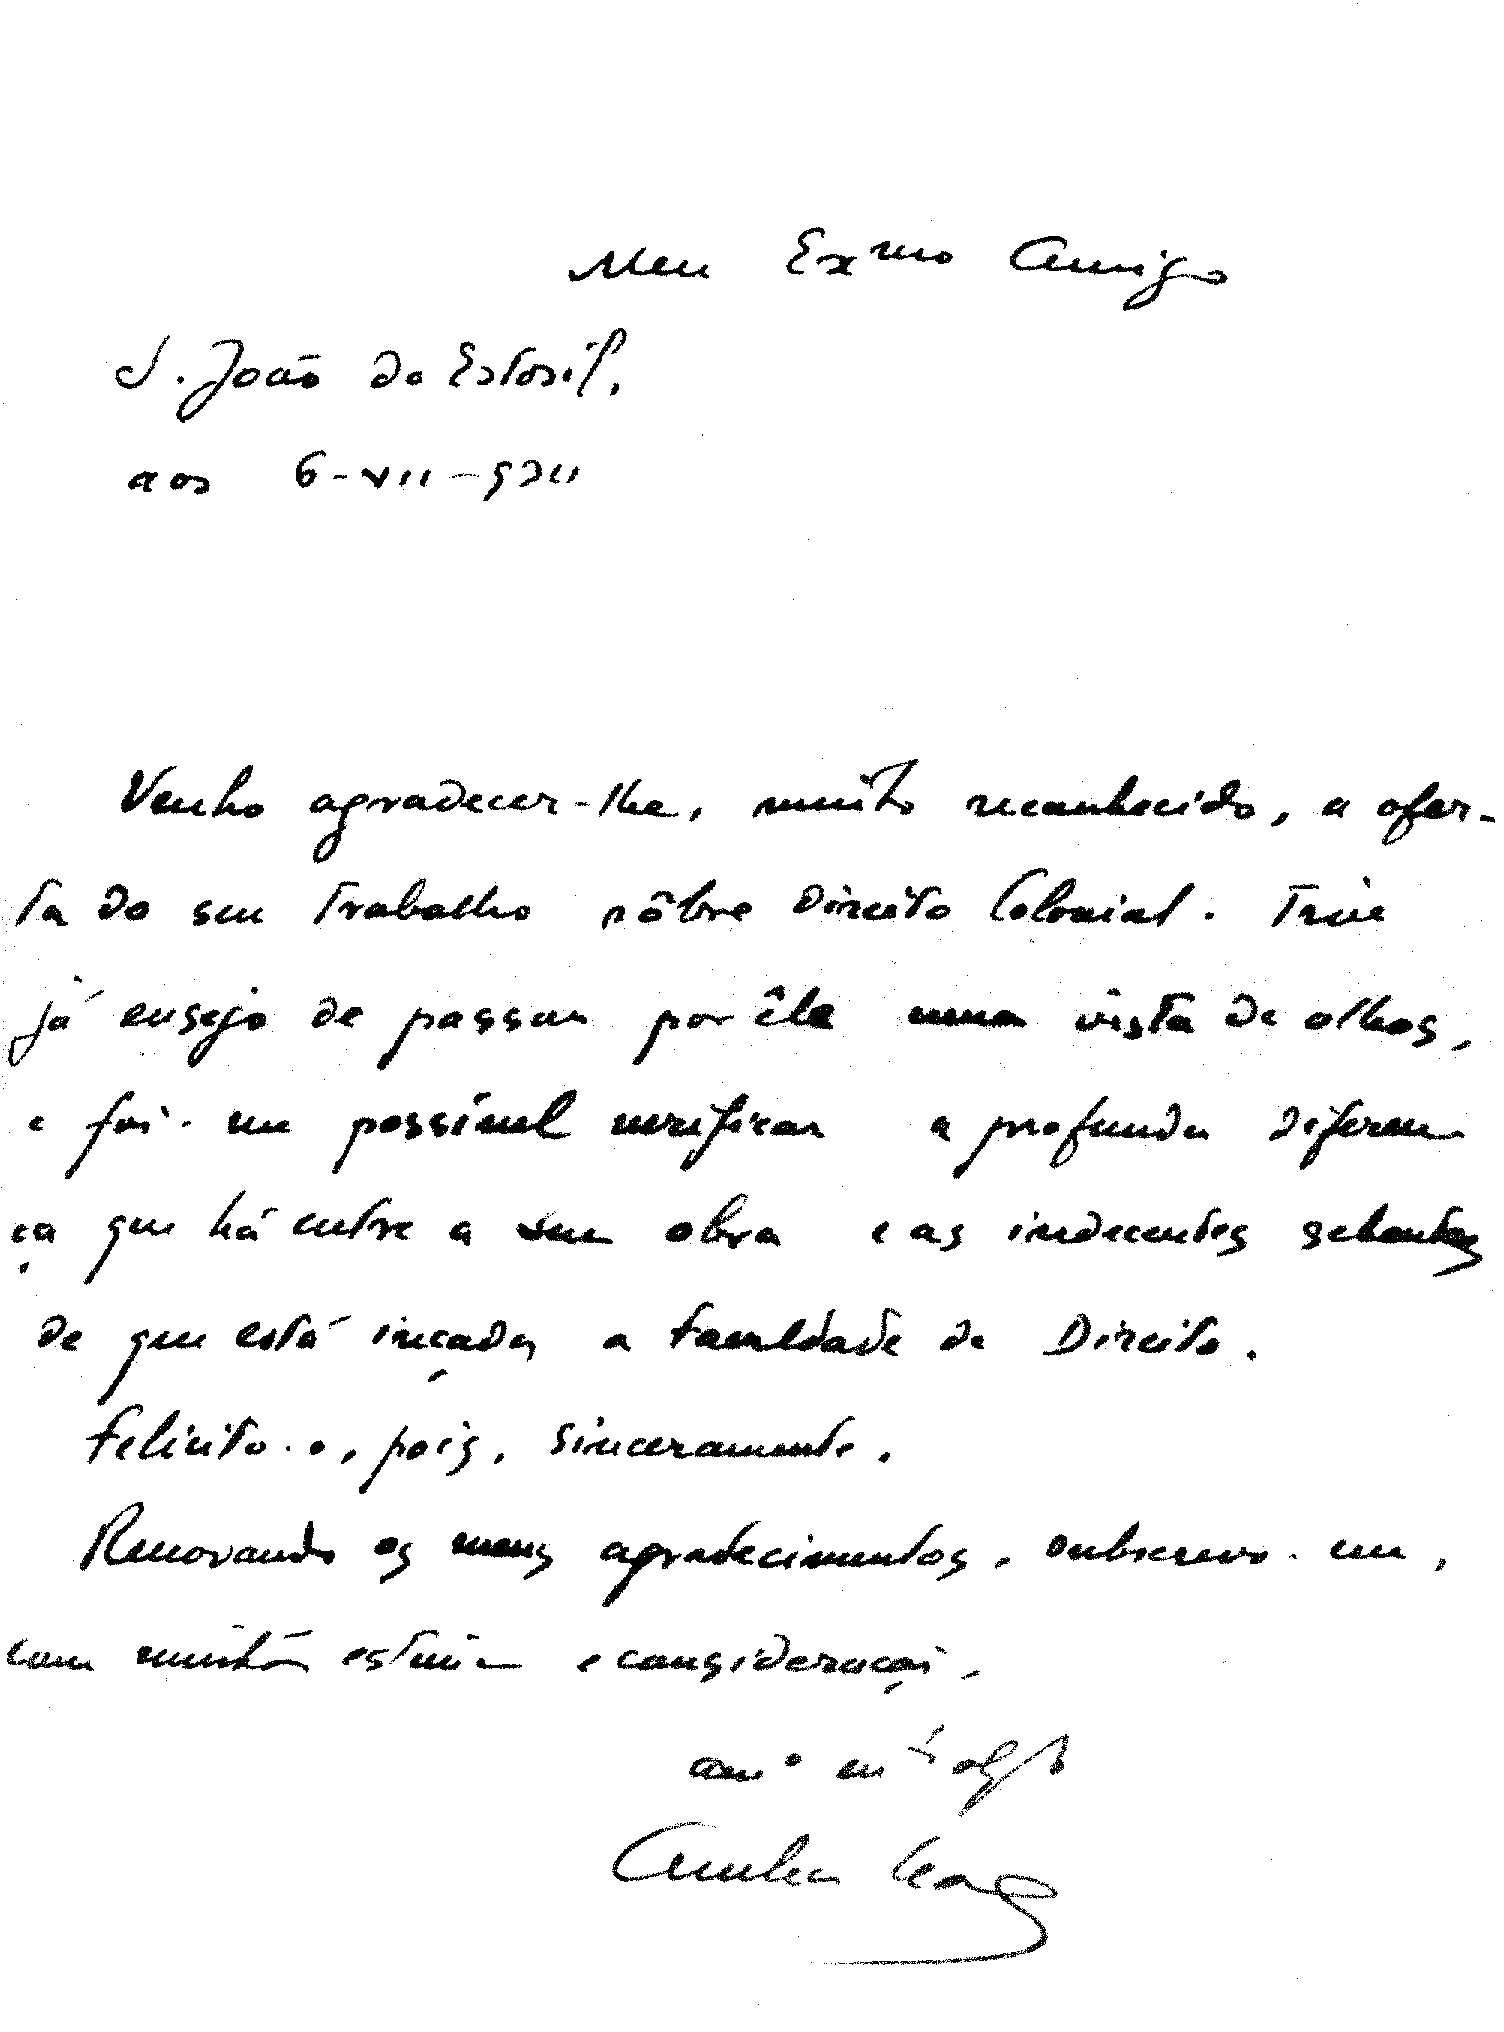 Meu Exmo Amigo
S. João do Estoril,
aos 6-VII-
Venho agradecer-lhe, muito reconhecido, a ofer-
ta do seu trabalho sôbre Direito Colonial. Tive
já ensejo de passar por êle uma vista de olhos,
e foi-me possível verificar a profunda diferen
ça que há entre a sua obra e as indecentes sebentas
de que está inçada a Faculdade de Direito.
Felicito-o, pois, sinceramente.
Renovando os meus agradecimentos, subscrevo-me,
com muita estima e consideração,
am.º